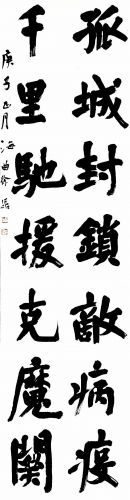 孤城封鎖敵病疫
千里馳援克魔關
庚子正月海曲徐強